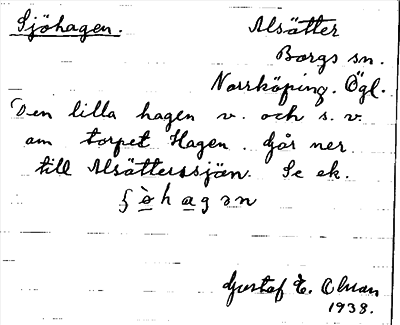 Sjöhagen. Alsätter
Borgs sn.
Norrköping. Ögl.
Den lilla hagen v. och s. v.
om torpet Hagen. Går ner
till Alsätterssjön. Se ek.
hagən
Gustaf E.
1938.